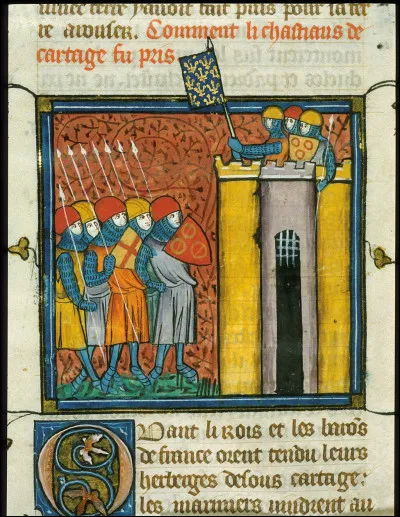 terre fait puis pour la ter
re arouser. Comment li chastiaus de
cartage fu pris
Quant li rois et les barõs
de france orent tendu leurs
herberges desous cartage:
les mariniers vindrent au